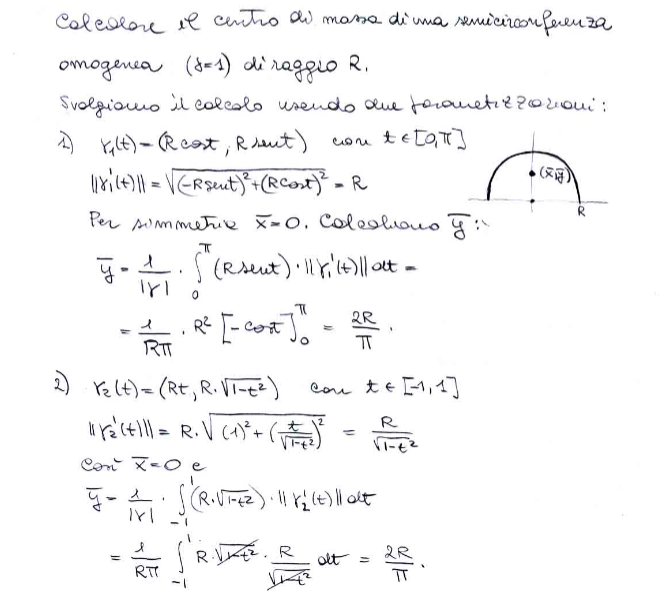 Calcolare il centro di massa di una semicirconferenza
omogenea (δ=1) di raggio R.
Svolgiamo il calcolo usando due parametrizzazioni:
1) γ₁(t) = (R cost, R sent) con t ∈ [0,π]
||γ₁'(t)|| = √((-R sent)² + (R cost)²) = R
(x̄,ȳ)
R
Per simmetria x̄=0. Calcoliamo ȳ:
ȳ = 1/|γ| · ∫₀^π (R sent) · ||γ₁'(t)|| dt =
= 1/(Rπ) · R² [-cost]₀^π = 2R/π .
2) γ₂(t) = (Rt, R·√(1-t²)) con t ∈ [-1,1]
||γ₂'(t)|| = R·√((1)² + (t/√(1-t²))²) = R/√(1-t²)
Così x̄=0 e
ȳ = 1/|γ| · ∫₋₁¹ (R·√(1-t²)) · ||γ₂'(t)|| dt
= 1/(Rπ) ∫₋₁¹ R·√(1-t²) · R/√(1-t²) dt = 2R/π .